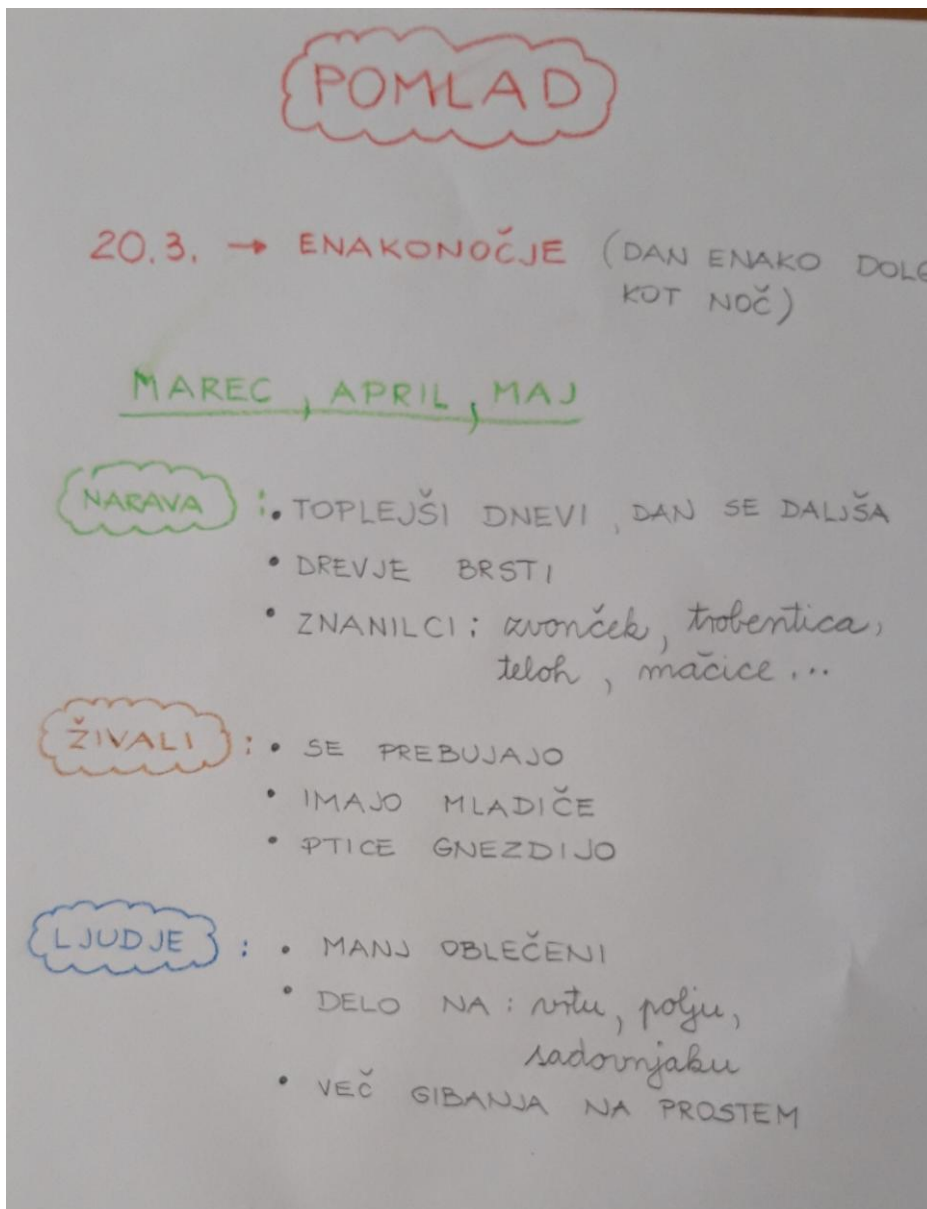 POMLAD
20.3. → ENAKONOČJE (DAN ENAKO DOLG
KOT NOČ)
MAREC, APRIL, MAJ
NARAVA : • TOPLEJŠI DNEVI, DAN SE DALJŠA
• DREVJE BRSTI
• ZNANILCI: zvonček, trobentica,
teloh, mačice...
ŽIVALI : • SE PREBUJAJO
• IMAJO MLADIČE
• PTICE GNEZDIJO
LJUDJE : • MANJ OBLEČENI
• DELO NA: vrtu, polju,
sadovnjaku
• VEČ GIBANJA NA PROSTEM